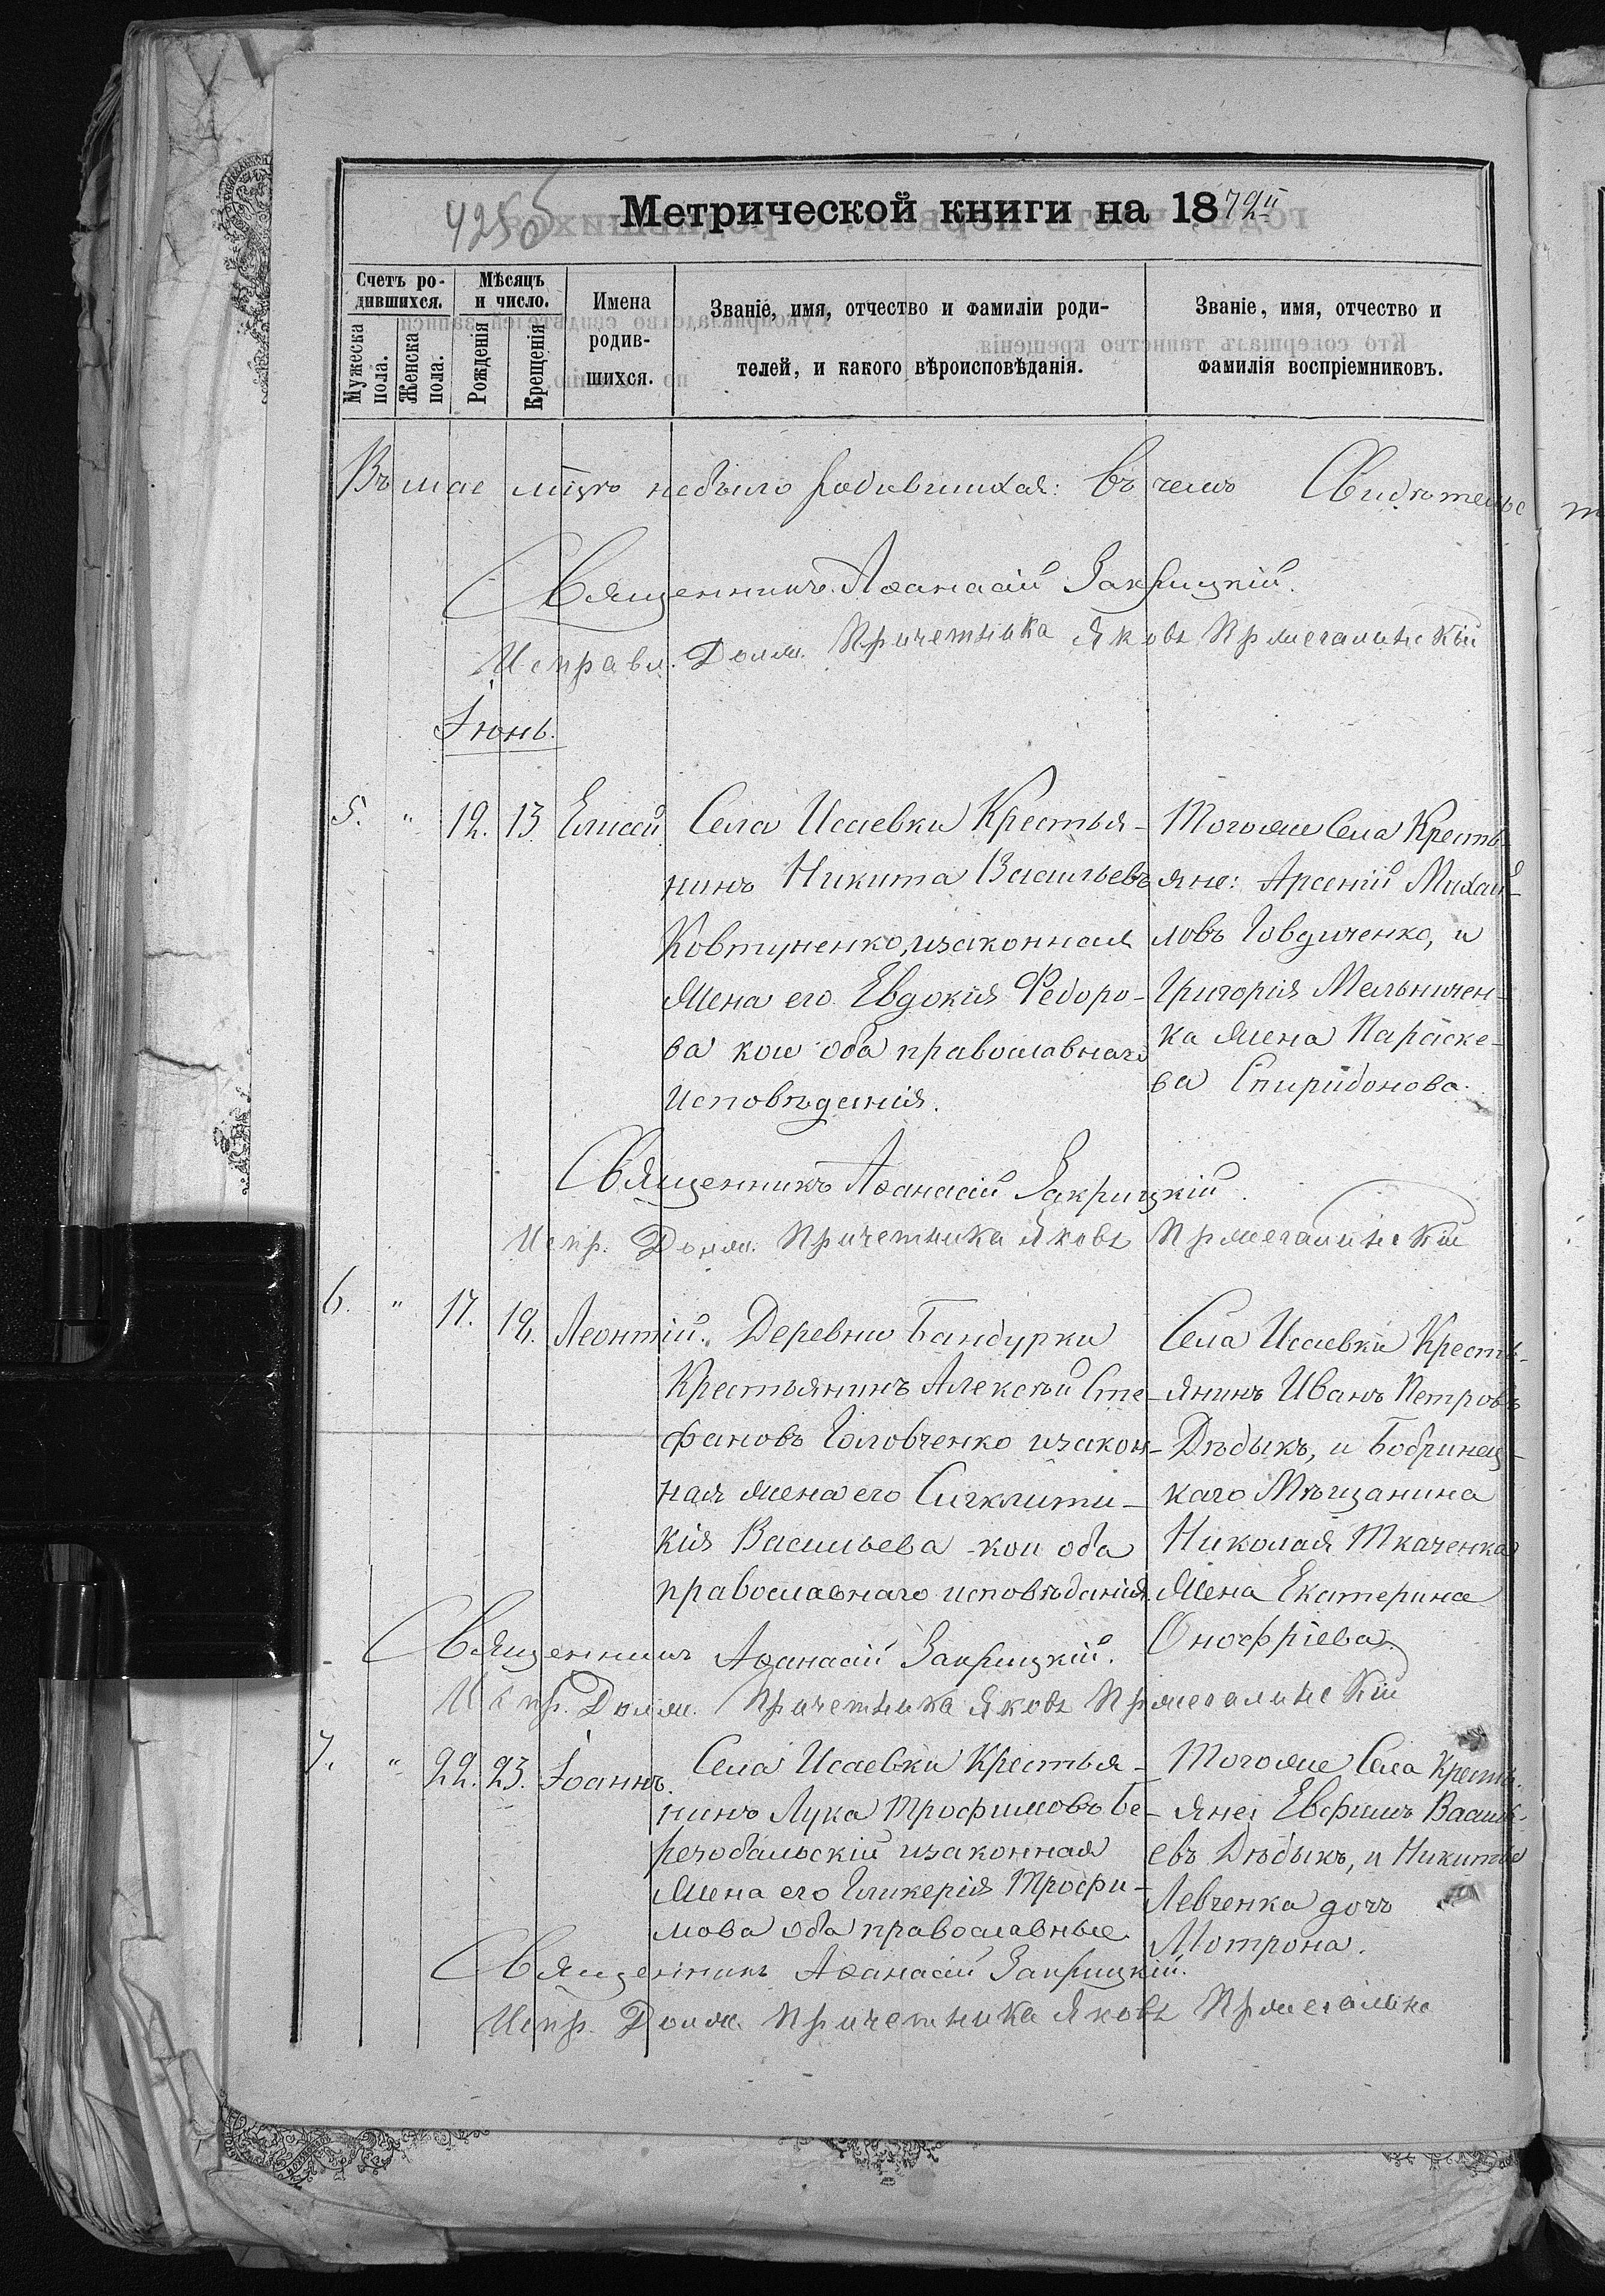 Метрической книги на 1879й
Счетъ ро-
дившихся.
Мѣсяцъ
и число.
Мужеска
пола.
Женска
пола.
Рожденія
Крещенія
Имена
родив-
шихся.
Званіе, имя, отчество и фамиліи роди-
телей, и какого вѣроисповѣданія.
Званіе, имя, отчество и
фамилія воспріемниковъ.
Въ мае мцѣ небыло родившихся: въ чемъ Свидѣтельс
Священникъ Аѳанасій Закрицкій.
Исправл. Долж. Причетника Яковъ
Іюнь.
5. " 12. 13 Елисей
Села Исаевки Крестья-
нинъ Никита Васильевъ
Ковтуненко, изаконная
жена его Евдокія Федоро-
ва кои оба православнаго
Исповѣденія.
Тогоже Села Кресть-
яне: Арсеній Михай-
ловъ Говдиченко, и
Григорія Мельничен-
ка жена Параске-
ва Спиридонова.
Священникъ Аѳанасій Закрицкій.
Испр. Долж. Причетника Яковъ
6. " 17. 19. Леонтій.
Деревни Бандурки
Крестьянинъ Алексѣй Сте-
фановъ Головченко изакон-
ная жена его Сигклити-
кія Васильева кои оба
православнаго исповѣданія.
Села Исаевки Кресть-
янинъ Иванъ Петровъ
Дѣдыкъ, и Бобринец-
каго Мѣщанина
Николая Ткаченка
Жена Екатерина
Онофріева.
Священникъ Аѳанасій Закрицкій.
Испр. Долж. Причетника Яковъ
7. " 22. 23. Іоаннъ.
Села Исаевки Крестья-
нинъ Лука Трофимовъ Бе-
изаконная
жена его Гликерія Трофи-
мова оба православные.
Тогоже Села Кресть-
яне: Евфимъ Василь-
евъ Дѣдыкъ, и Никиты
Левченка дочь
Мотрона.
Священникъ Аѳанасій Закрицкій.
Испр. Долж. Причетника Яковъ